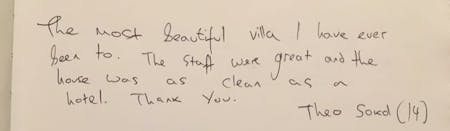 The most beautiful villa I have ever
been to. The staff were great and the
house was as clean as a
hotel. Thank You.
Theo (14)